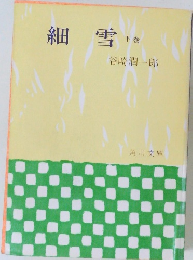 細雪 下巻
谷崎潤一郎